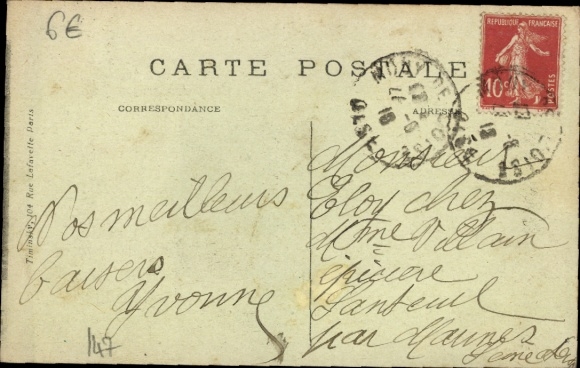 6€
CARTE POSTALE
CORRESPONDANCE
ADRESSE
REPUBLIQUE FRANÇAISE
10c
POSTES
OISE
Nos meilleurs
baisers
Yvonne
147
Monsieur
Eloy chez
Mme Villain
épicière
Santeuil
par Marines
Seine et
Rue Lafayette Paris